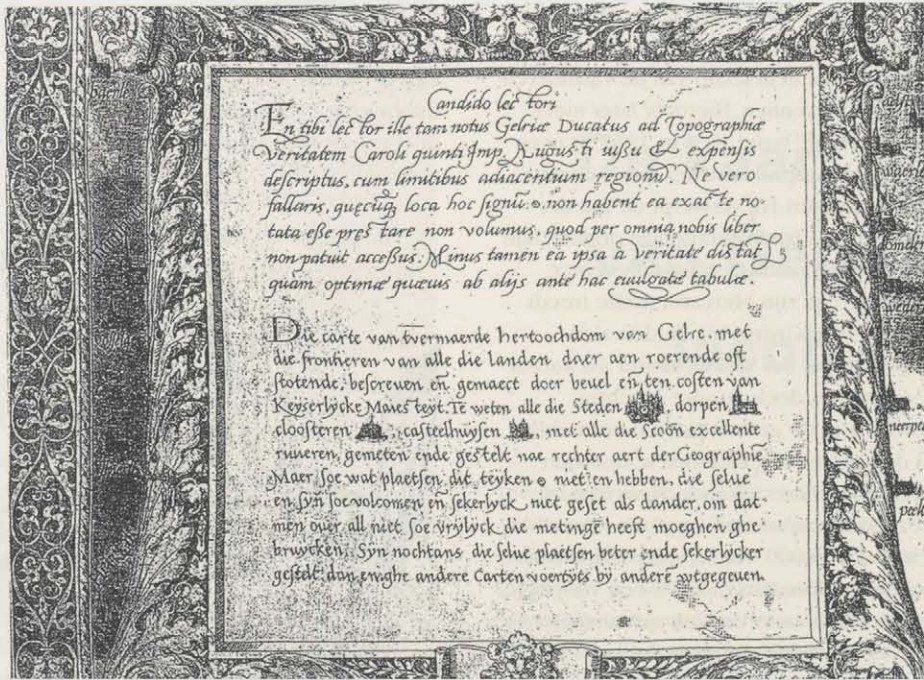 Candido lectori
En tibi lector ille tam notus Gelriæ Ducatus ad Topographiæ
veritatem Caroli quinti Imp. Augusti iussu & expensis
descriptus, cum limitibus adiacentium regionũ. Ne vero
fallaris, quęcũq₃ loca hoc signũ ⊙ non habent ea exacte no-
tata esse prestare non volumus, quod per omnia nobis liber
non patuit accessus. Minus tamen ea ipsa a veritate distat
quam optimæ quæuis ab alijs ante hac euulgatę tabulæ.
Die carte van tvermaerde hertoochdom van Gelre, met
die frontieren van alle die landen daer aen roerende oft
stotende, bescreuen eñ gemaect doer beuel eñ ten costen van
Keyserlycke Maiesteyt. Te weten alle die Steden , dorpen
cloosteren , casteelhuysen , met alle die scoon excellente
riuieren, gemeten ende gestelt nae rechter aert der Geographiẽ
Maer soe wat plaetsen dit teyken ⊙ niet en hebben, die selue
en syn soe volcomen eñ sekerlyck niet geset als dander, om dat
men ouer all niet soe vrylyck die metingẽ heeft moeghen ghe
bruycken. Syn nochtans die selue plaetsen beter ende sekerlycker
gestelt dan enighe andere Carten voertyts by anderẽ wtgegeuen.